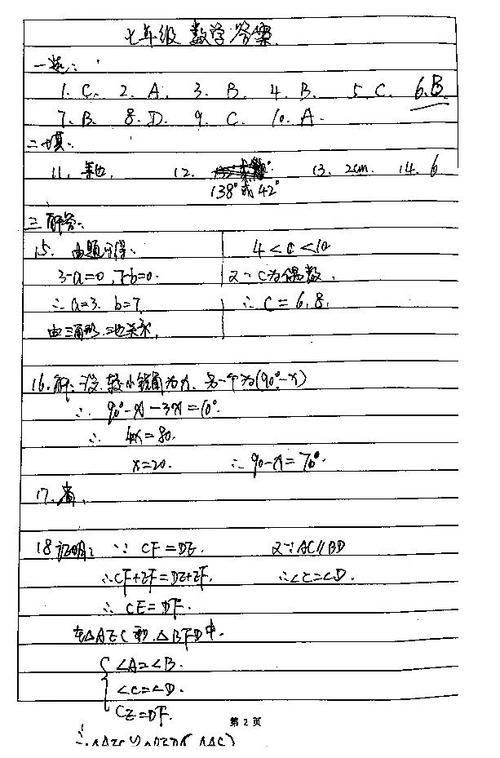 七年级 数学答案
一选:
1. C. 2. A. 3. B. 4. B. 5. C. 6. B
7. B. 8. D. 9. C. 10. A.
二填:
11. 12. 13. 2cm. 14. 6
138°或42°
三解答:
15. 由题可得:
3-a=0, 7-b=0.
∴a=3. b=7
由三角形三边关系,
4<c<10
又∵C为偶数.
∴C=6,8.
16.解:设较小锐角为x,另一个为(90°-x)
∴ 90°-x-3x=10°
∴ 4x=80.
x=20. ∴90-x=70°.
17.
18证明: ∵CF=DE. 又∵AC∥BD
∴CF+EF=DE+EF. ∴∠C=∠D.
∴CE=DF.
在△AEC和△BFD中.
∠A=∠B.
∠C=∠D.
CE=DF.
第 2 页